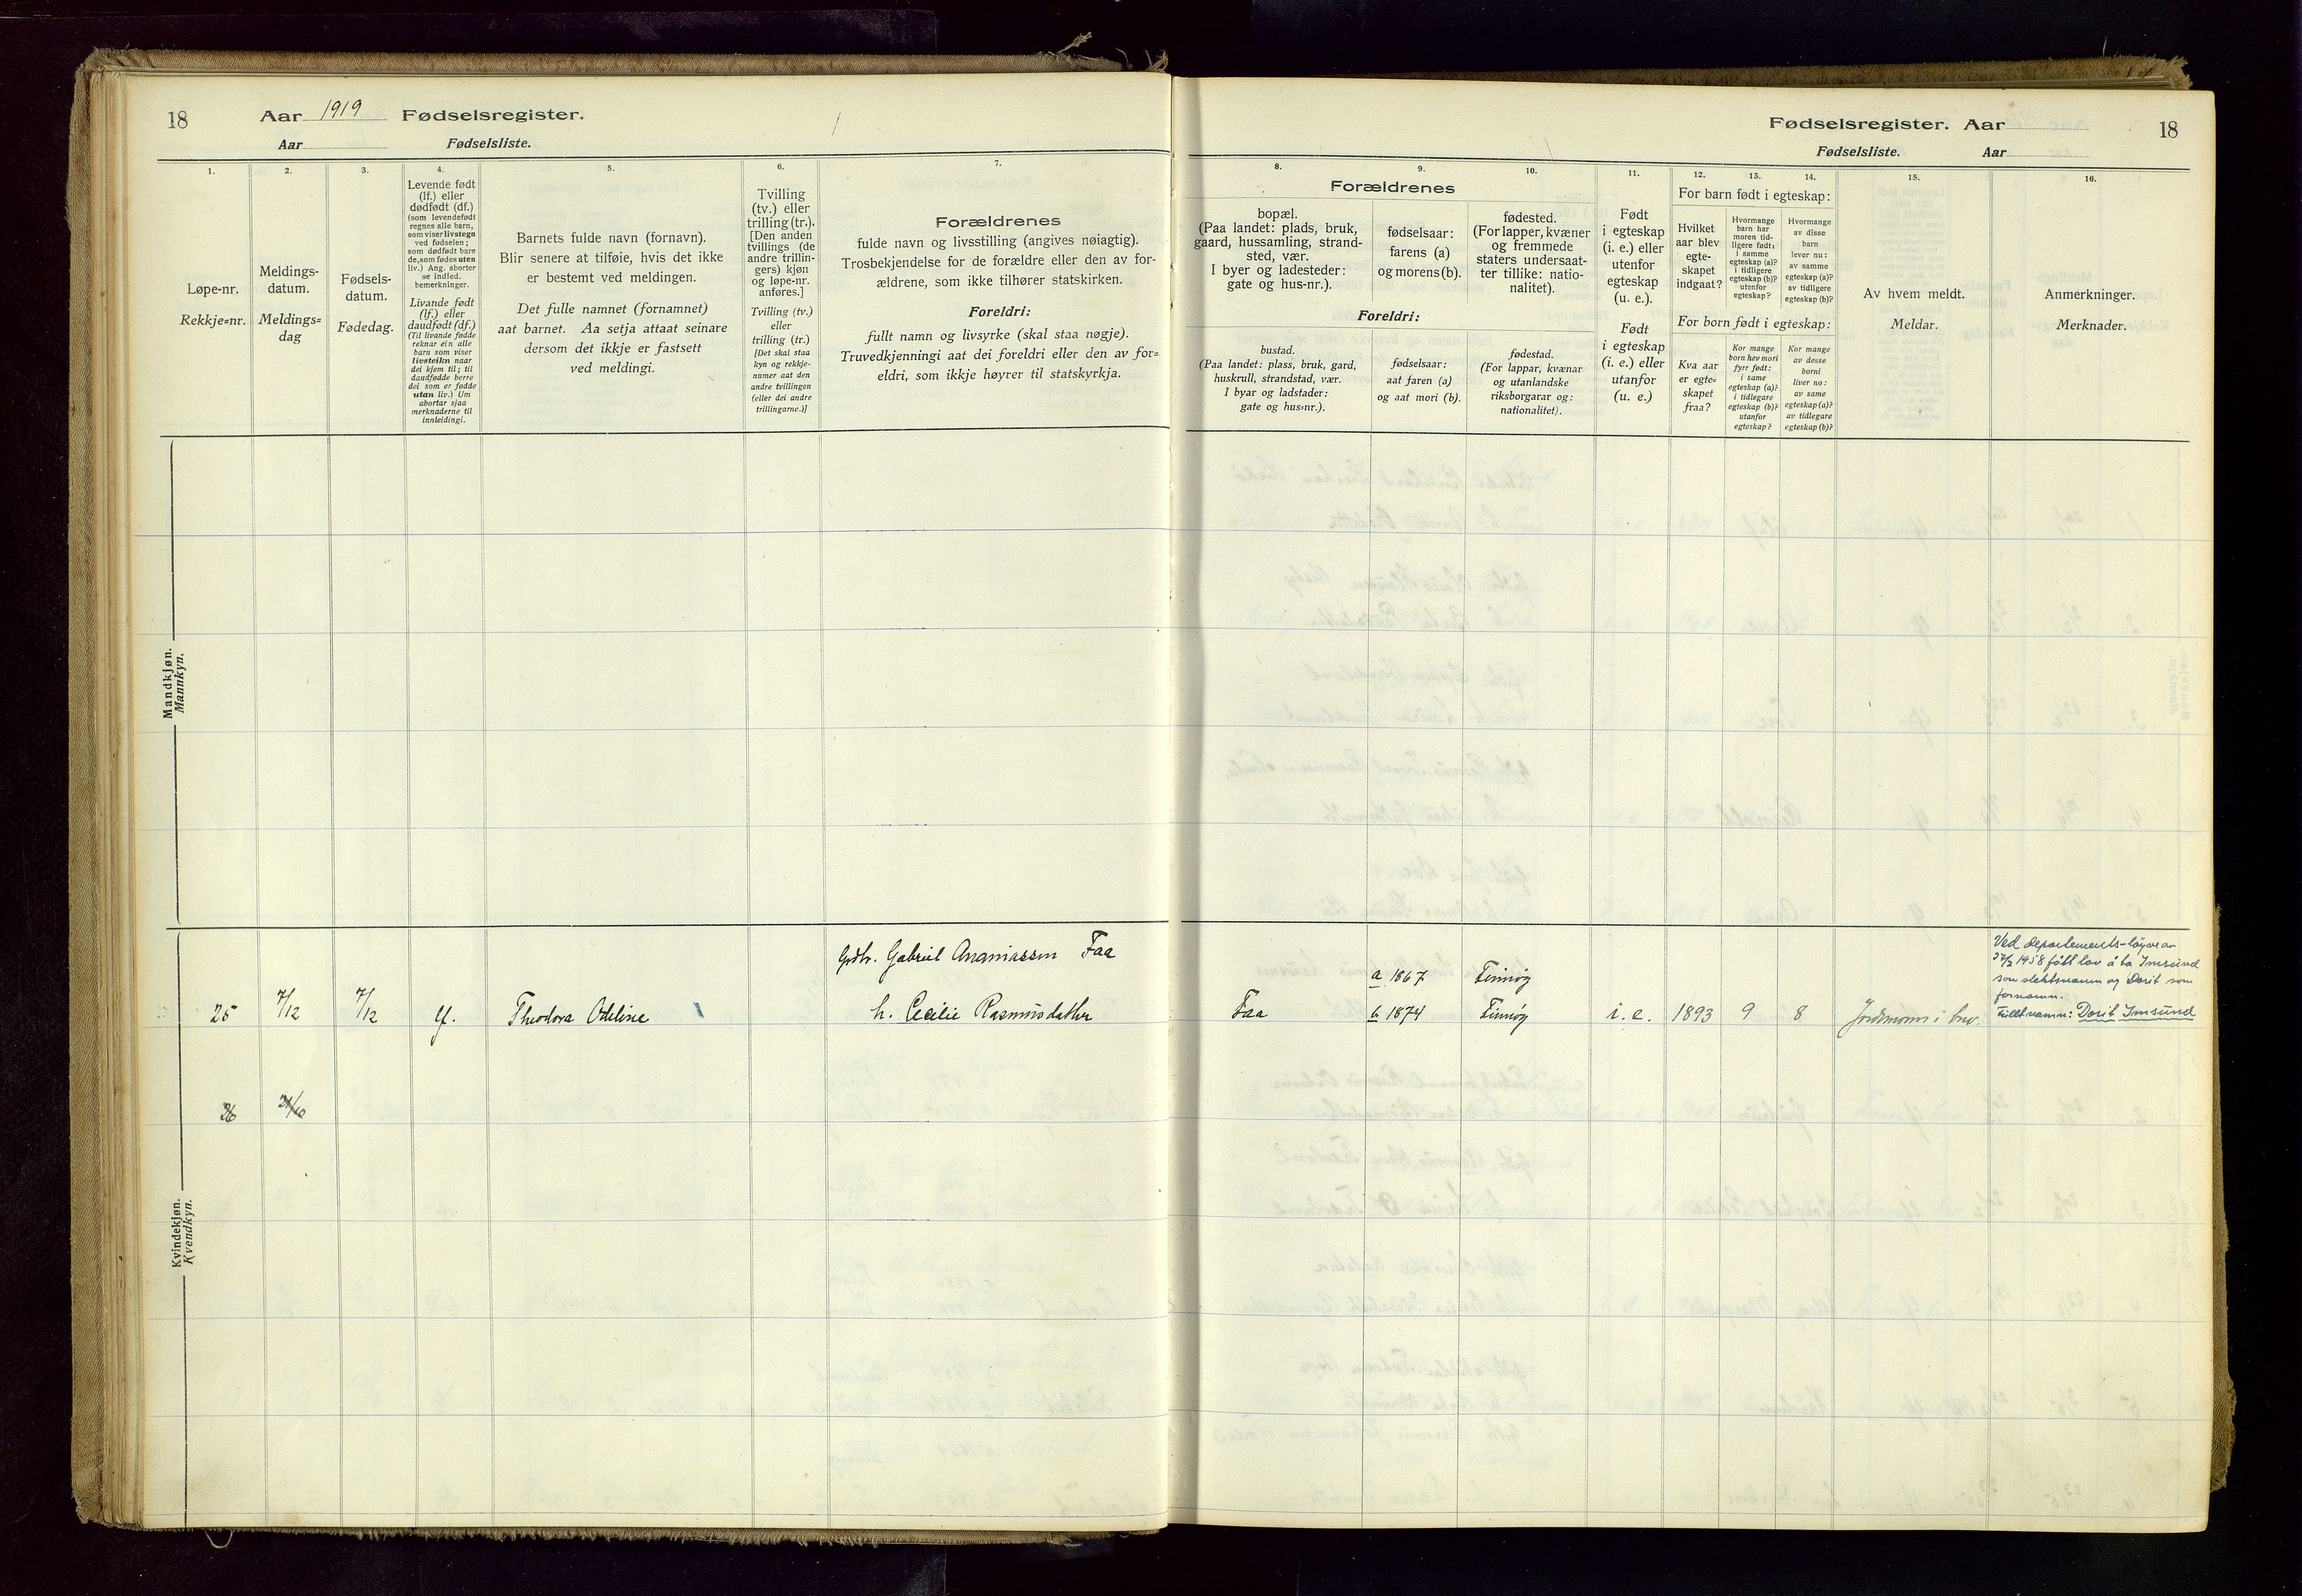 18
Aar 1919 Fødselsregister.
Aar Fødselsliste.
1.
2.
3.
4.
5.
6.
7.
Løpe-nr.
Rekkje=nr.
Meldings-
datum.
Meldings=
dag
Fødsels-
datum.
Fødedag.
Levende født
(lf.) eller
dødfødt (df.)
(som levendefødt
regnes alle barn,
som viser livstegn
ved fødselen;
som dødfødt bare
de, som fødes uten
liv.) Ang. aborter
se indled.
bemerkninger.
Livande født
(lf.) eller
daudfødt (df.)
(Til livande fødde
reknar ein alle
barn som viser
livsteikn naar
dei kjem til; til
daudfødde berre
dei som er fødde
utan liv.) Um
abortar sjaa
merknaderne til
innleidingi.
Barnets fulde navn (fornavn).
Blir senere at tilføie, hvis det ikke
er bestemt ved meldingen.
Det fulle namnet (fornamnet)
aat barnet. Aa setja attaat seinare
dersom det ikkje er fastsett
ved meldingi.
Tvilling
(tv.) eller
trilling (tr.).
[Den anden
tvillings (de
andre trillin-
gers) kjøn
og løpe-nr.
anføres.]
Tvilling (tv.)
eller
trilling (tr.)
[Det skal staa
kyn og rekkje-
numer aat den
andre tvillingen
(eller dei andre
trillingarne.)]
Forældrenes
fulde navn og livsstilling (angives nøiagtig).
Trosbekjendelse for de forældre eller den av for-
ældrene, som ikke tilhører statskirken.
Foreldri:
fullt namn og livsyrke (skal staa nøgje).
Truvedkjenningi aat dei foreldri eller den av for=
eldri, som ikkje høyrer til statskyrkja.
Mandkjøn.
Mannkyn.
Kvindekjøn.
Kvendkyn.
Gdbr. Gabriel Ananiassen Faa
25 7/12 7/12 lf. Theodora Odeline h. Cecilie Rasmusdatter
26
Fødselsregister. Aar 18
Fødselsliste. Aar
8.
9.
10.
11.
12.
13.
14.
15.
16.
Forældrenes
bopæl.
(Paa landet: plads, bruk,
gaard, hussamling, strand-
sted, vær.
I byer og ladesteder:
gate og hus-nr.).
fødselsaar:
farens (a)
og morens (b).
fødested.
(For lapper, kvæner
og fremmede
staters undersaat-
ter tillike: natio-
nalitet).
Foreldri:
bustad.
(Paa landet: plass, bruk, gard,
huskrull, strandstad, vær.
I byar og ladstader:
gate og hus=nr.).
fødselsaar:
aat faren (a)
og aat mori (b).
fødestad.
(For lappar, kvænar
og utanlandske
riksborgarar og:
nationalitet).
Født
i egteskap
(i. e.) eller
utenfor
egteskap
(u. e.).
Født
i egteskap
(i. e.) eller
utanfor
(u. e.)
For barn født i egteskap:
Hvilket
aar blev
egte-
skapet
indgaat?
Hvormange
barn har
moren tid-
ligere født:
i samme
egteskap (a)?
i tidligere
egteskap (b)?
utenfor
egteskap?
Hvormange
av disse
barn
lever nu:
av samme
egteskap (a)?
av tidligere
egteskap (b)?
For born født i egteskap:
Kva aar
er egte=
skapet
fraa?
Kor mange
born hev mori
fyrr født:
i same
egteskap (a)?
i tidlegare
egteskap (b)?
utanfor
egteskap?
Kor mange
av desse
borni
liver no:
av same
egteskap (a)?
av tidlegare
egteskap (b)?
Av hvem meldt.
Meldar.
Anmerkninger.
Merknader.
a 1867 Finnøy
Faa b 1874 Finnøy i. e. 1893 9 8 Jordmoren i brev.
Ved departements-løyve av
27/2 1958 fått lov å ta Imsund
som slektsnamn og Dorit som
fornamn.
Fullt namn: Dorit Imsund